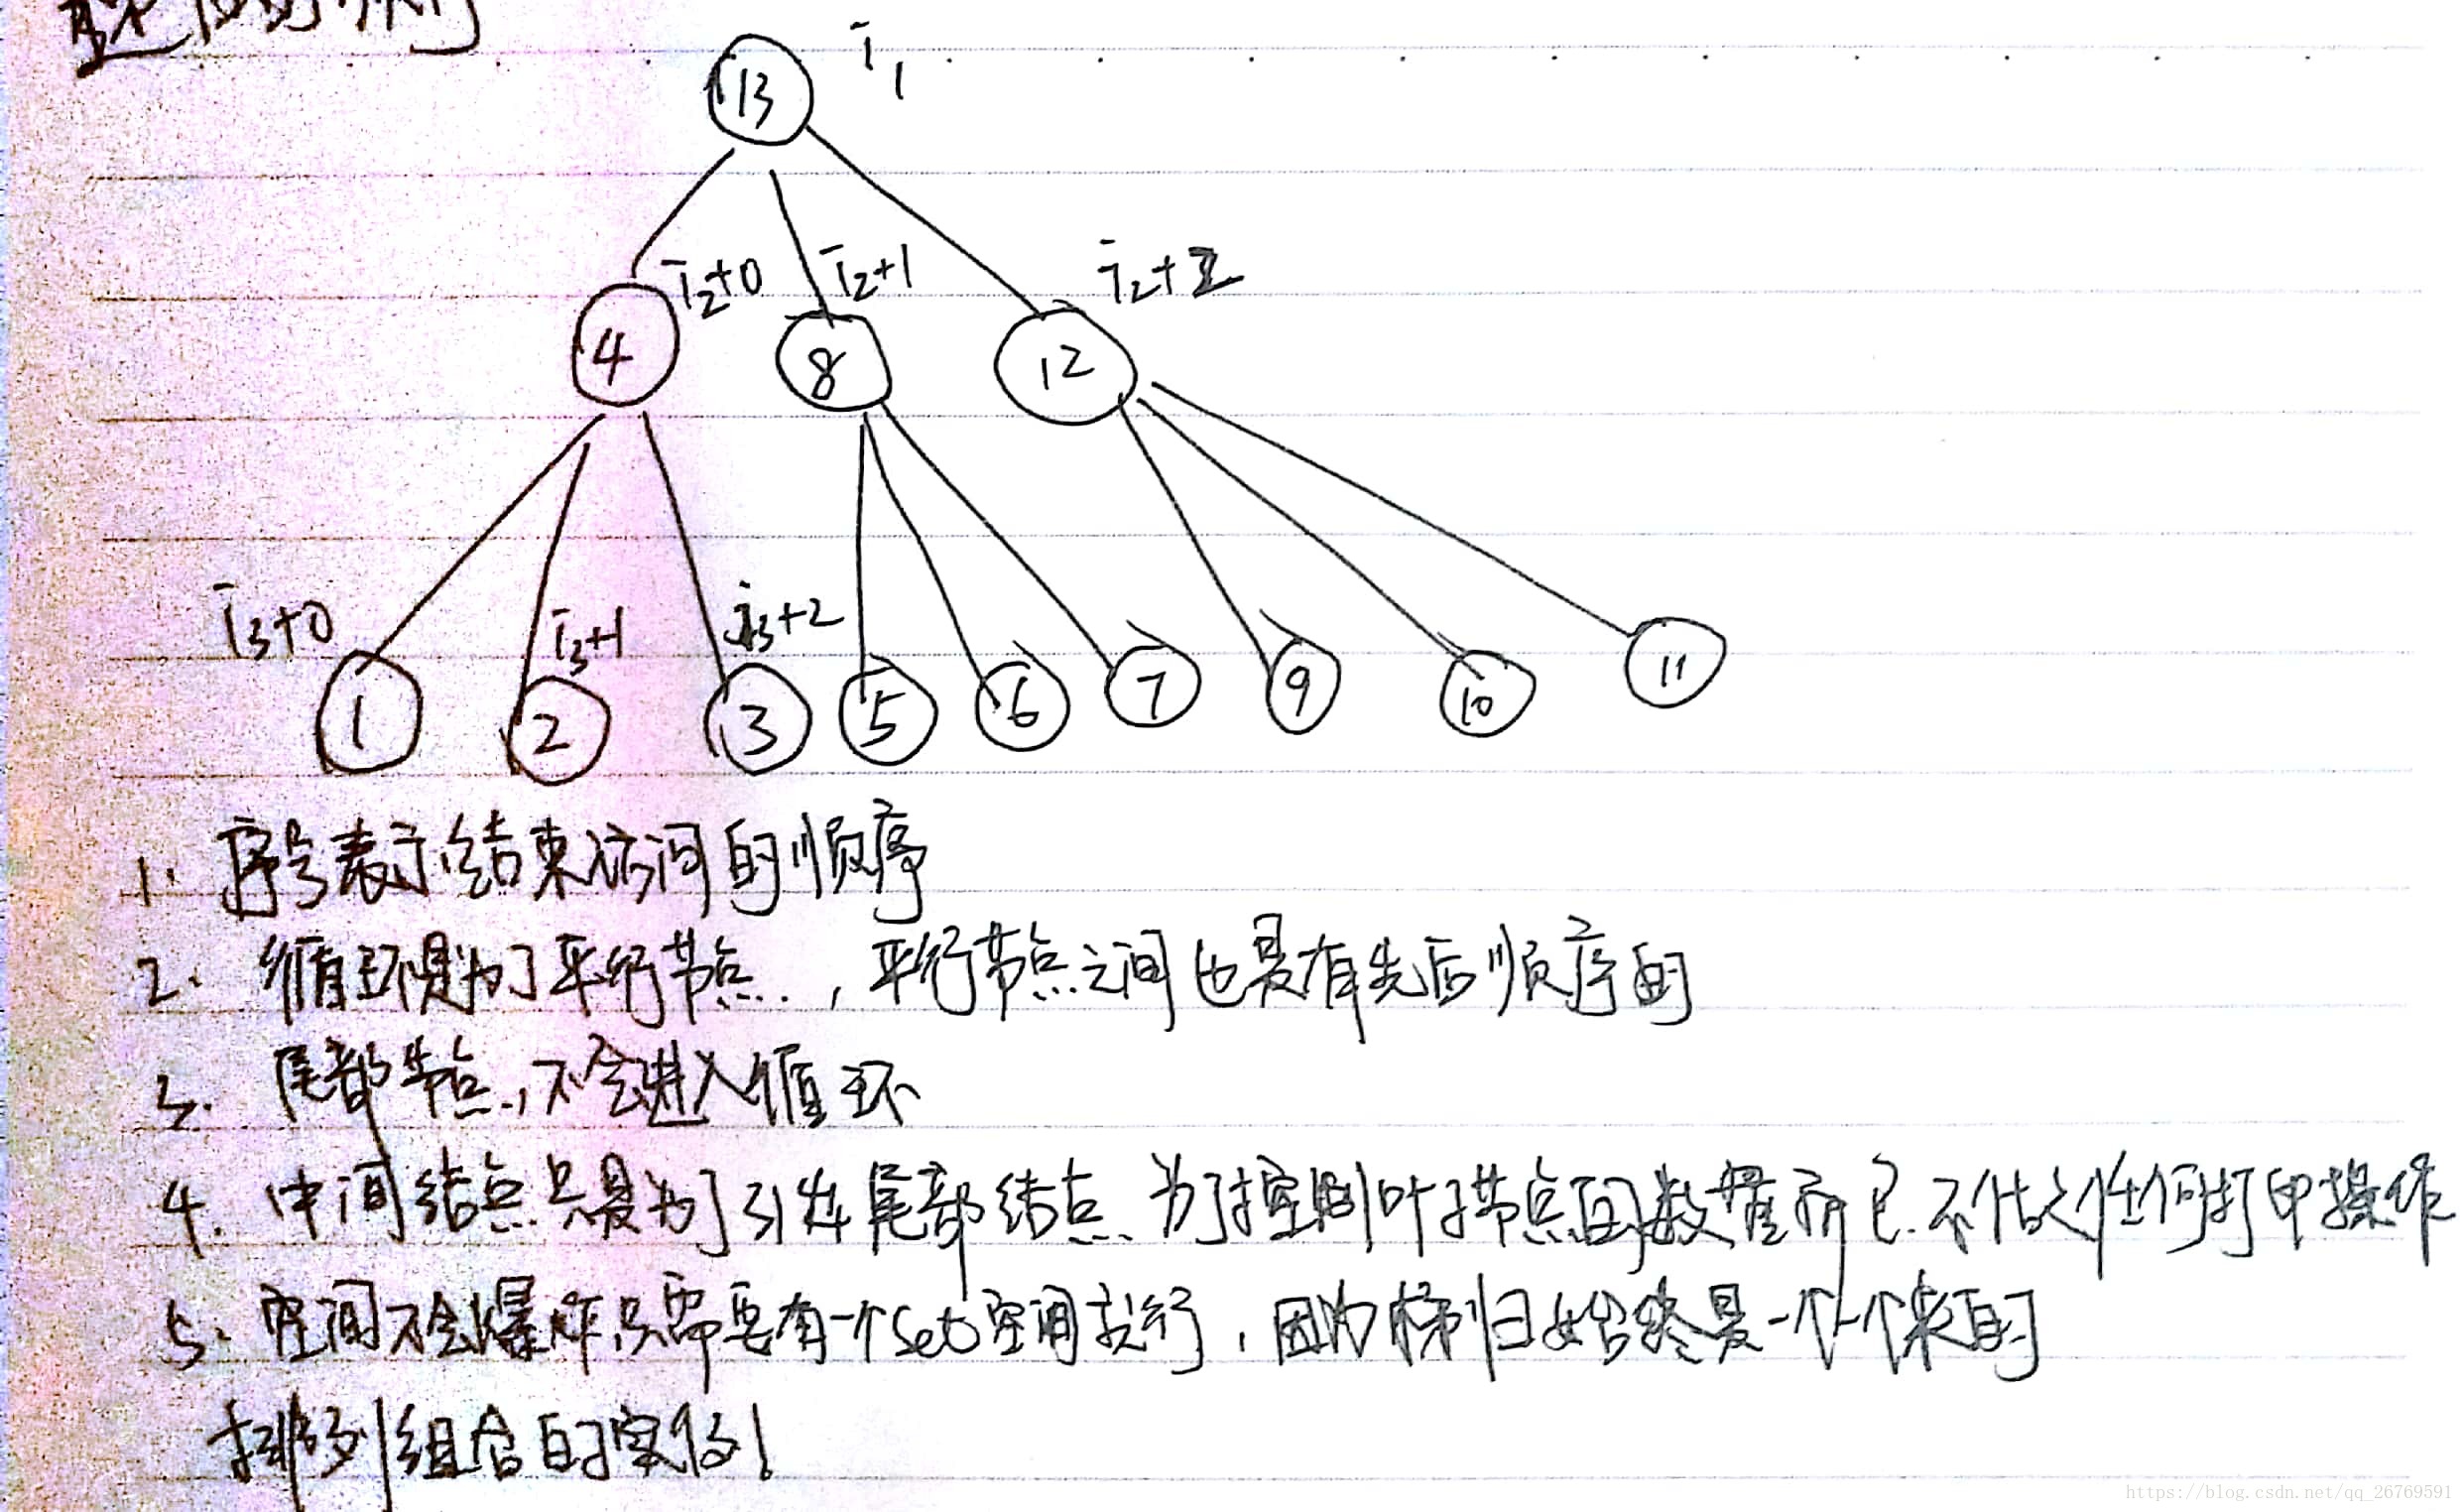 i₁
13
i₂+0 i₂+1 i₂+2
4 8 12
i₃+0 i₃+1 i₃+2
1 2 3 5 6 7 9 10 11
1. 序号表示结束访问的顺序
2. 循环是为了平行节点,平行节点之间也是有先后顺序的
3. 尾部节点,不会进入循环
4. 中间结点只是为了引发尾部结点、为了控制叶子节点的数量而已.不做任何打印操作
5. 空间不会爆炸只需要有一个set空间就行,因为梯归始终是一个一个来的
排列组合的实例!
https://blog.csdn.net/qq_26769591